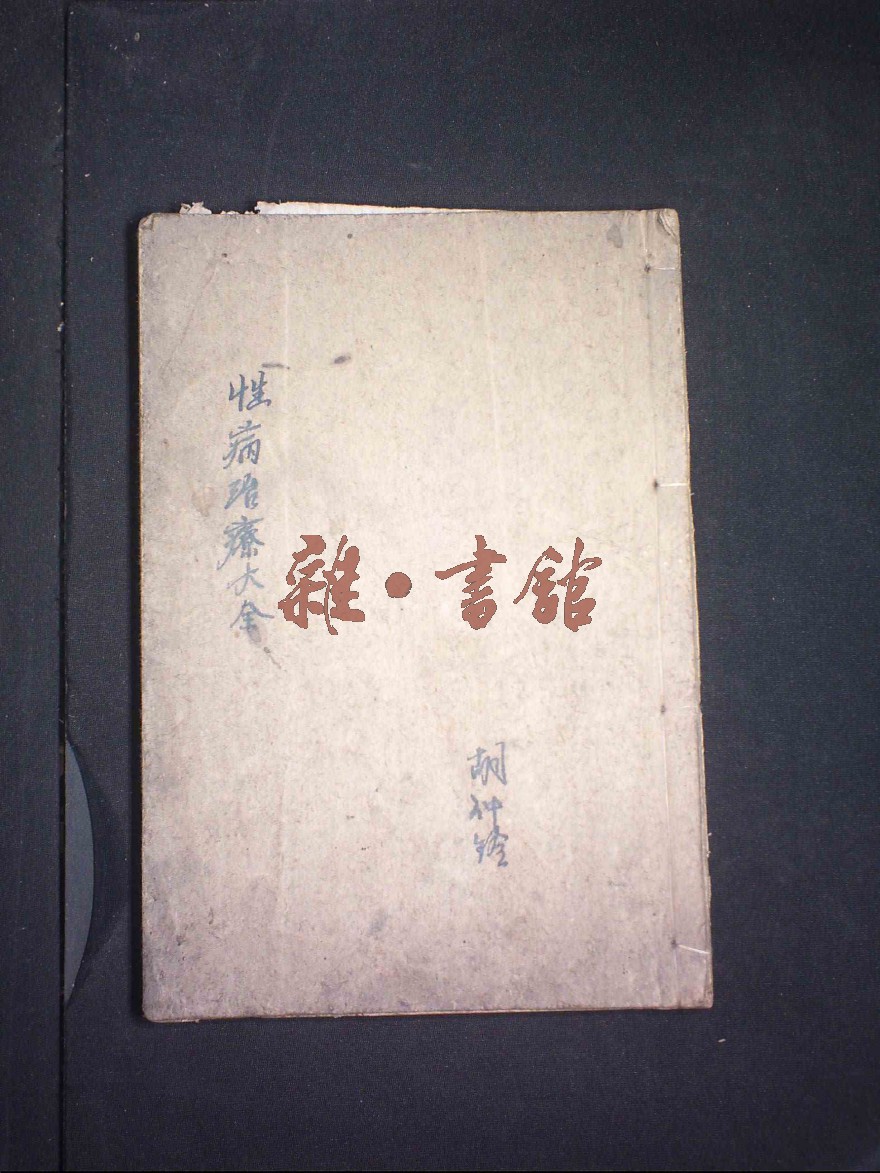 性病治療大全
雜·書館
胡仲銓